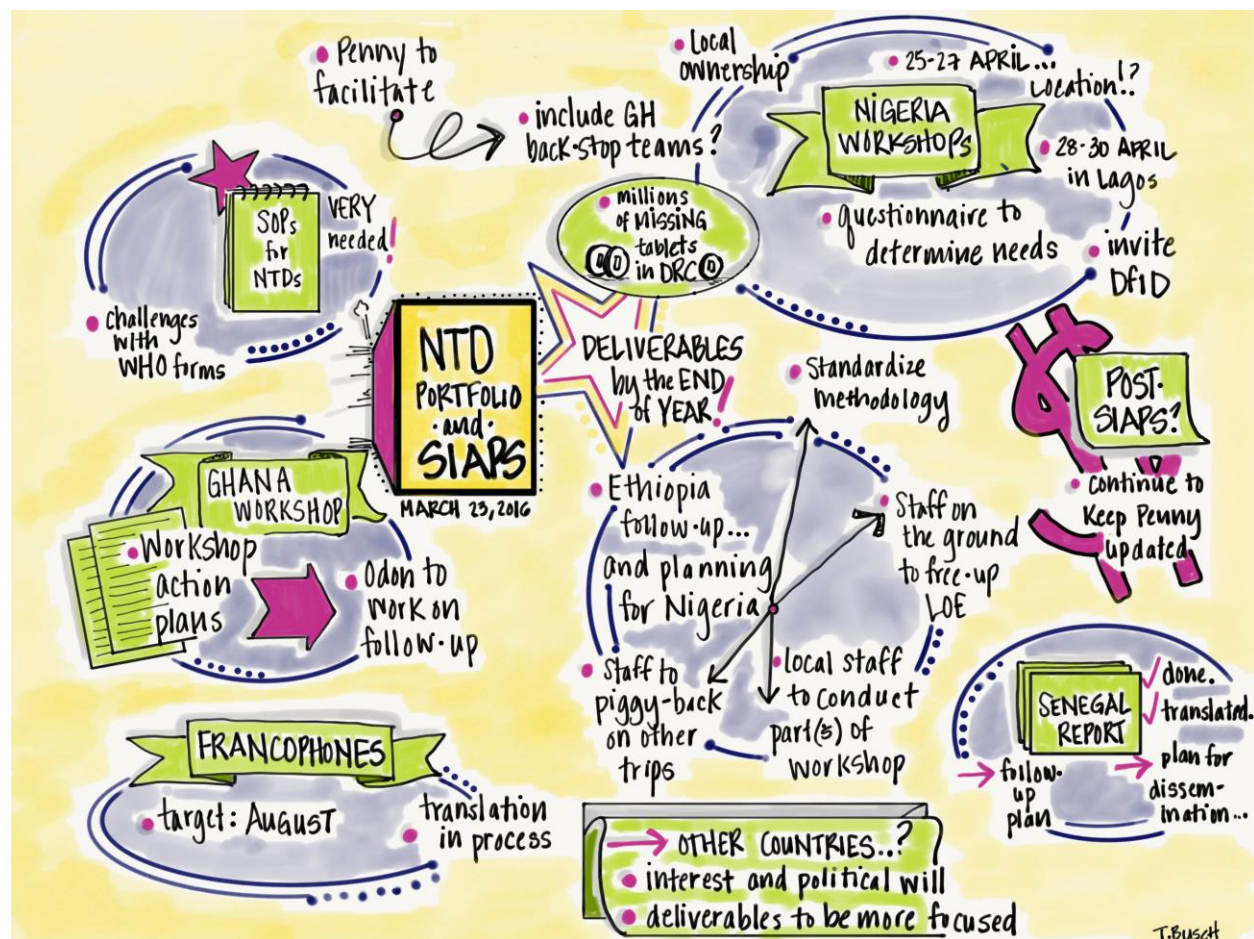 NTD
PORTFOLIO
·and·
SIAPS
MARCH 23, 2016
Penny to
facilitate
include GH
back·stop teams?
Local
ownership
25-27 APRIL...
Location!?
NIGERIA
WORKSHOPS
28-30 APRIL
in Lagos
questionnaire to
determine needs
invite
DfID
SOPs
for
NTDs
VERY
needed!
challenges
with
WHO forms
millions
of MISSING
tablets
in DRC
DELIVERABLES
by the END
of YEAR!
Standardize
methodology
POST·
SIAPS?
continue to
Keep Penny
updated
GHANA
WORKSHOP
Workshop
action
plans
Odon to
work on
follow·up
Ethiopia
follow·up...
and planning
for Nigeria
Staff on
the ground
to free·up
LOE
Staff to
piggy-back
on other
trips
local staff
to conduct
part(s) of
workshop
SENEGAL
REPORT
done.
translated.
follow·
up
plan
plan for
dissem-
ination...
FRANCOPHONES
target: AUGUST
translation
in process
OTHER COUNTRIES..?
interest and political will
deliverables to be more focused
T.BUSCH